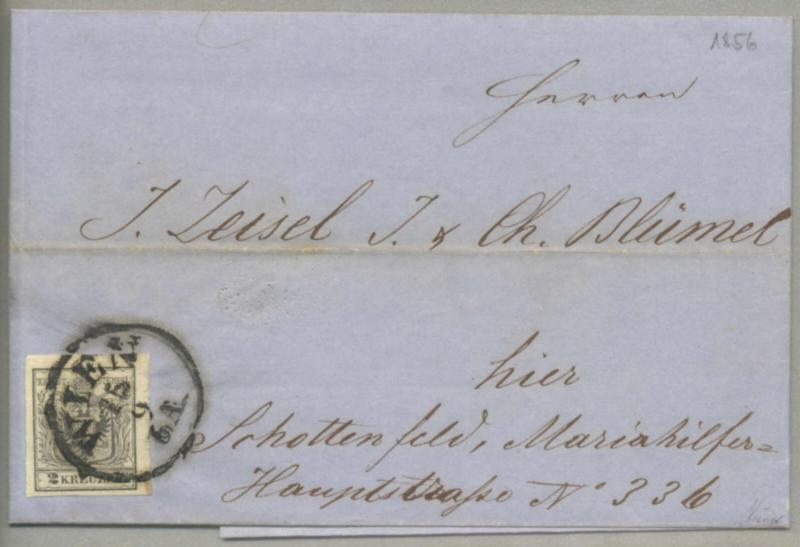 1856
Herren
J. Zeisel J. & Ch. Blümel
hier
Schottenfeld, Mariahilfer=
Hauptstraße No 336
WIEN
15
9
6A.
2 KREUZER